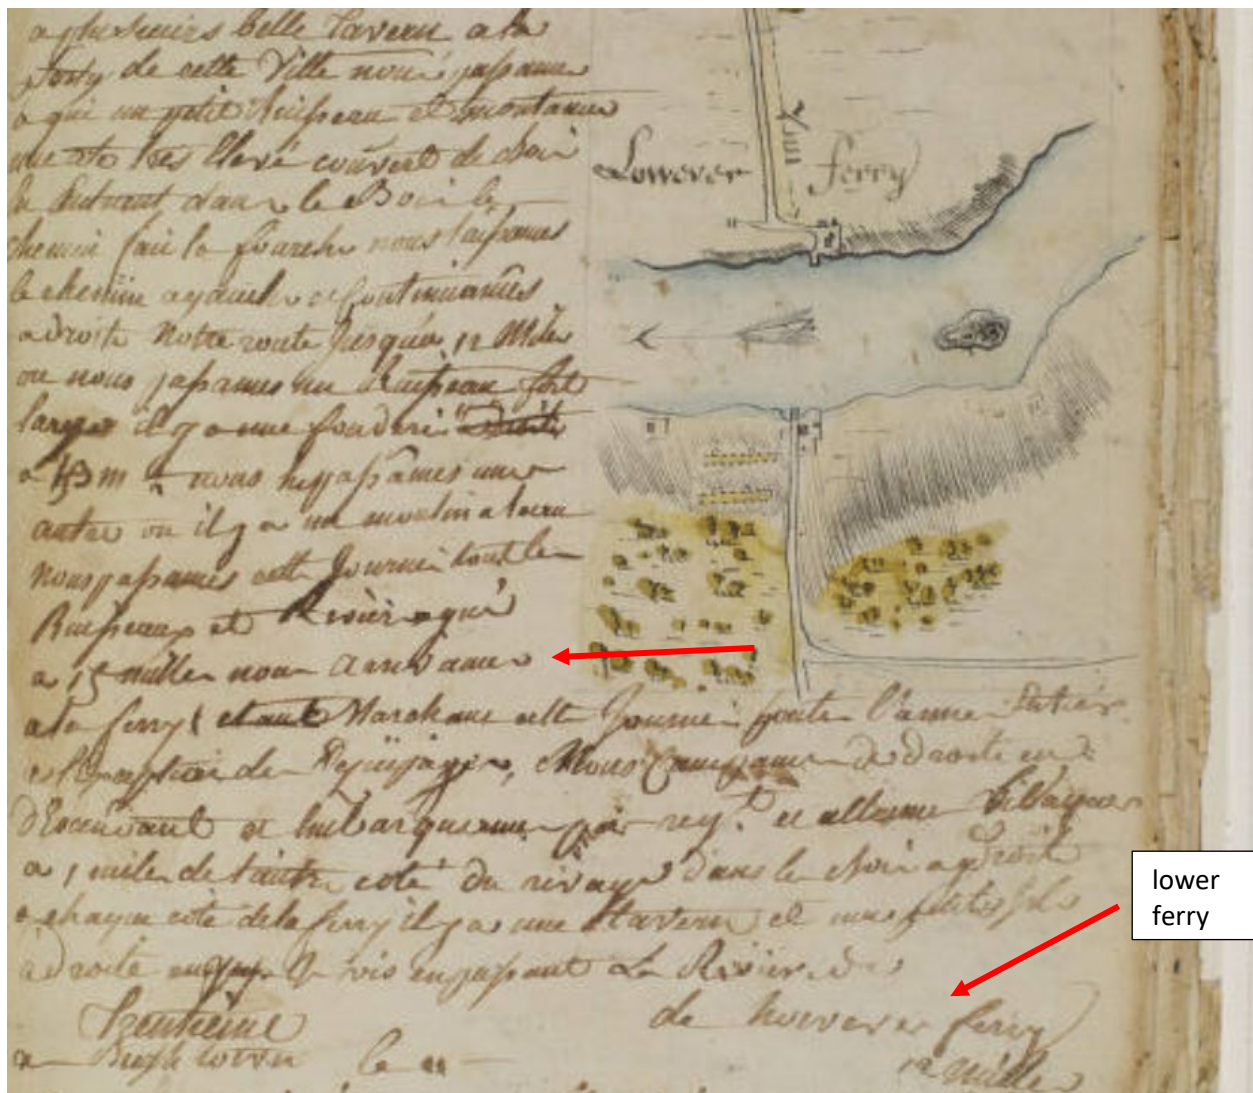 a plusieurs belle tavern a la
de cette Ville nous passame
a qui un petit Ruisseau et montame
une cote tres Elevé couvert de Bois
Entrant dans le Bois le
chemin fait la fourche nous laissames
le chemin a gauche et continuames
a droite Notre route jusqua 12 Miles
ou nous passames un Ruisseau fort
large il y a une fonderi
a 13 m nous repassames une
autre ou il y a un moulin a
nous passames cette Journé tout les
Ruisseaux et Rivier a gué
a 15 milles nous arrivames
a la ferry etant Marchant cette Journé toute l'armé Entier
a l'Exception des Equipages, Nous Campame de droite en
d'Escendant et Embarquame par regt. et allame
a 1 mile de l'autre coté du rivage dans le Bois a Droit
a chaque coté de la ferry il y a une tavern et une petite
a droite vis en passant La Rivier
de howerer ferry
a Bush town le
12 Mille
Lowerer ferry
lower
ferry